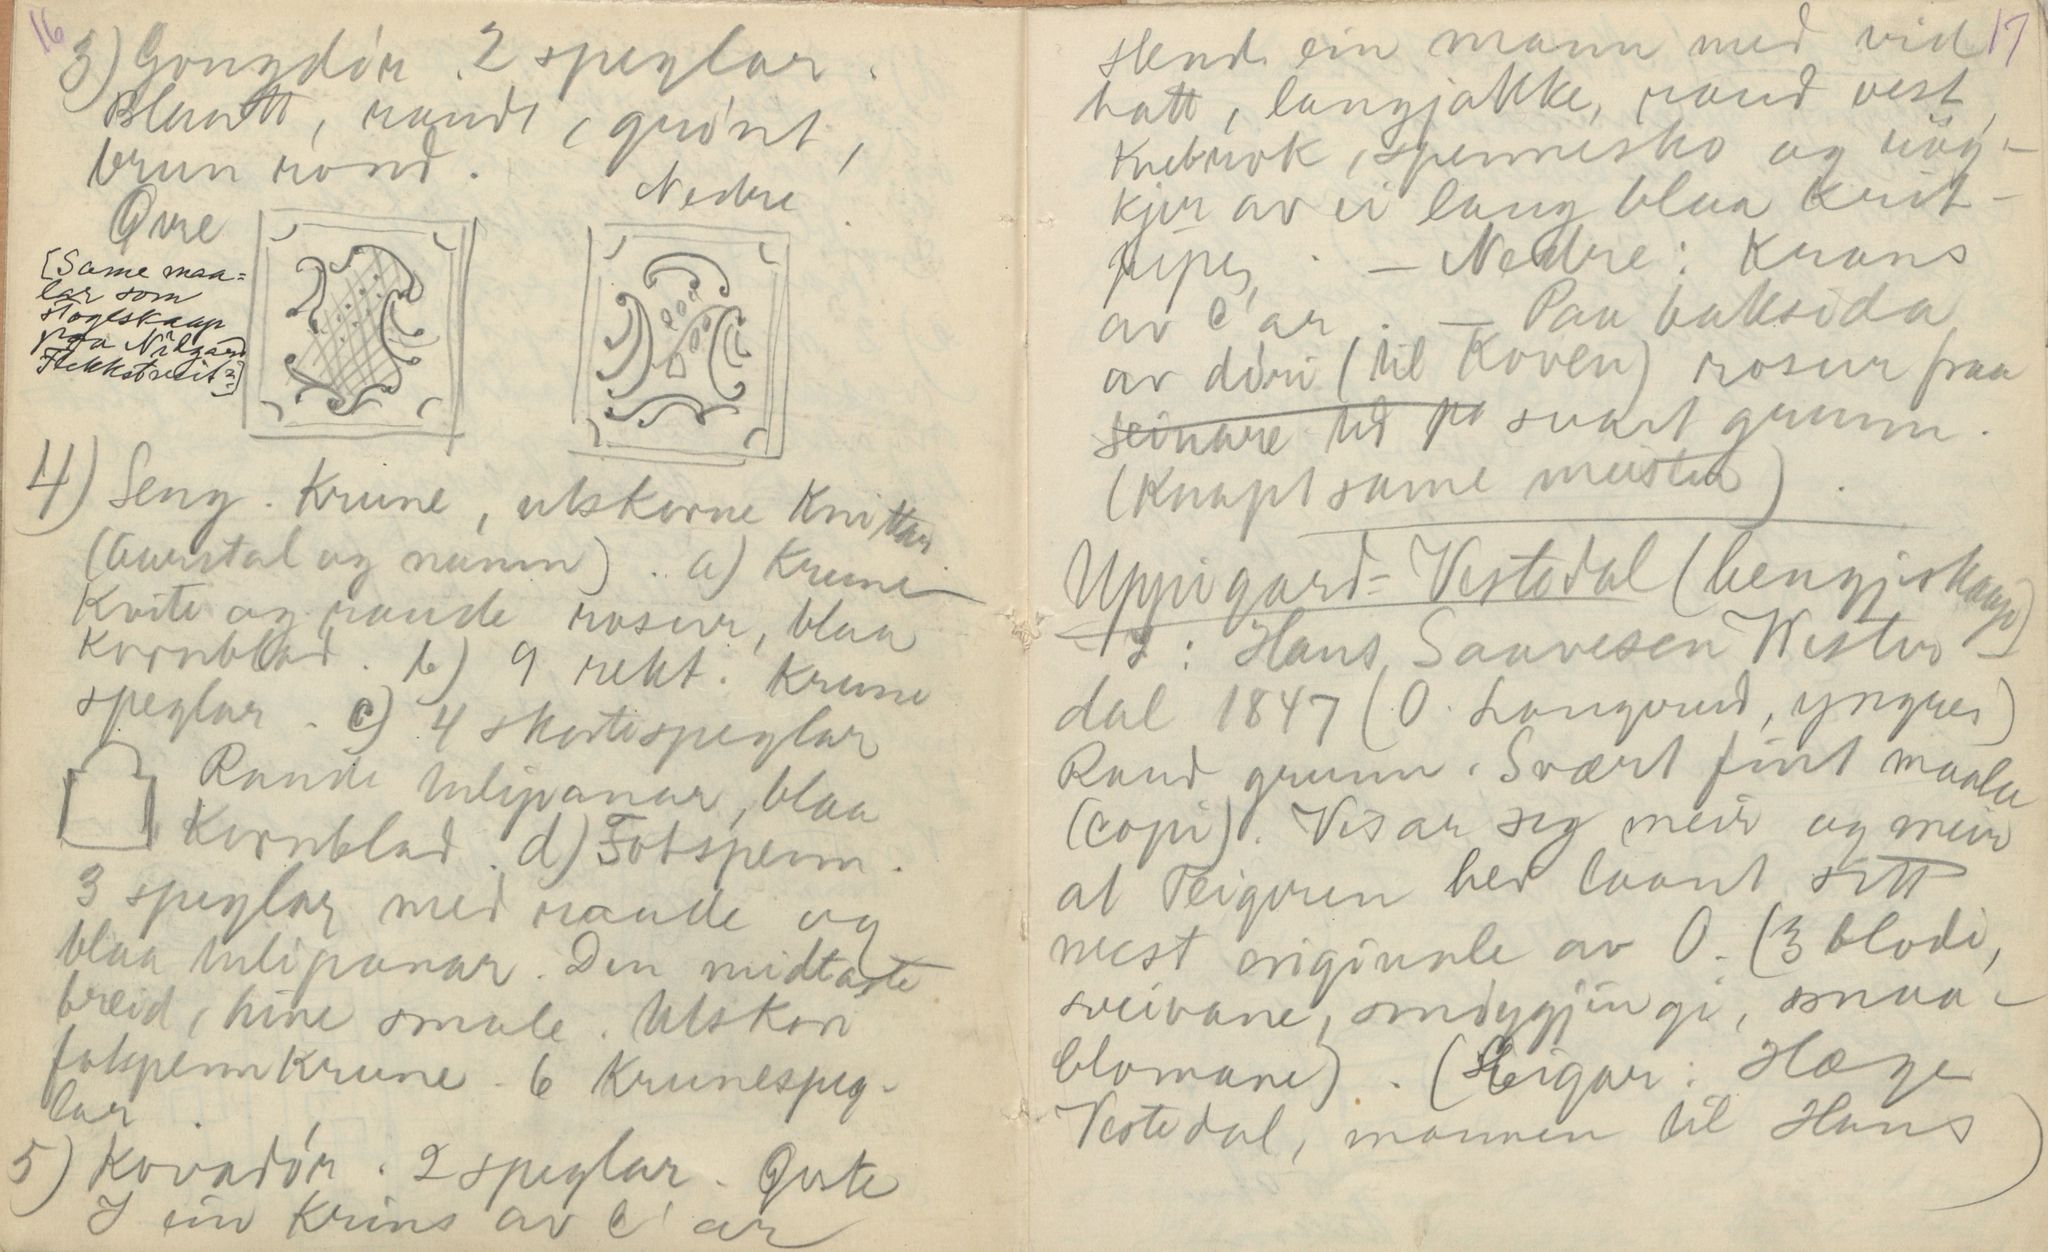 16
3) Gongdør. 2 speglar.
Blaatt, raudt, grønt,
brun rond.
Øvre
Nedre
[Same maa-
lar som
stogeskaap
fraa Nilgard
Flekkstveit?]
4) Seng. Krune, utskorne Knittar
(burstal og namn). a) Krune
Kvite og raude rosur, blaa
Kornblad. b) 9 rekt. Krune
speglar. c) 4 skortespeglar
Raude tulipanar, blaa
Kornblad. d) Fotspenn.
3 speglar med raude og
blaa tulipanar. Den midtaste
breid, hine smale. Utskori
fotspennkrune. 6 Krunespeg-
lar.
5) Kovadør. 2 speglar. Øvste
I ein Krins av C'ar
17
stend ein mann med vid
hatt, langjakke, raud vest,
Knebrok, spennesko og røy-
kjer av ei lang blaa Krit-
pipe. — Nedre: Krans
av C'ar. — Paa baksida
av døri (til Koven) rosur fraa
seinare tid på svart grunn.
(Knapt same meister).
Uppigard-Vestedal (hengjeskaap)
I: Hans Saavesen Vestur-
dal 1847 (O. Langerud, yngre)
Raud grunn. Svært fint maala
(copi). Visar seg meir og meir
at Teigeren hev laant sitt
mest originale av O. (3 blodi,
sveivane, smøygjingi, smaa-
blomane). (Eigar: Hæge
Vestedal, mannen til Hans)